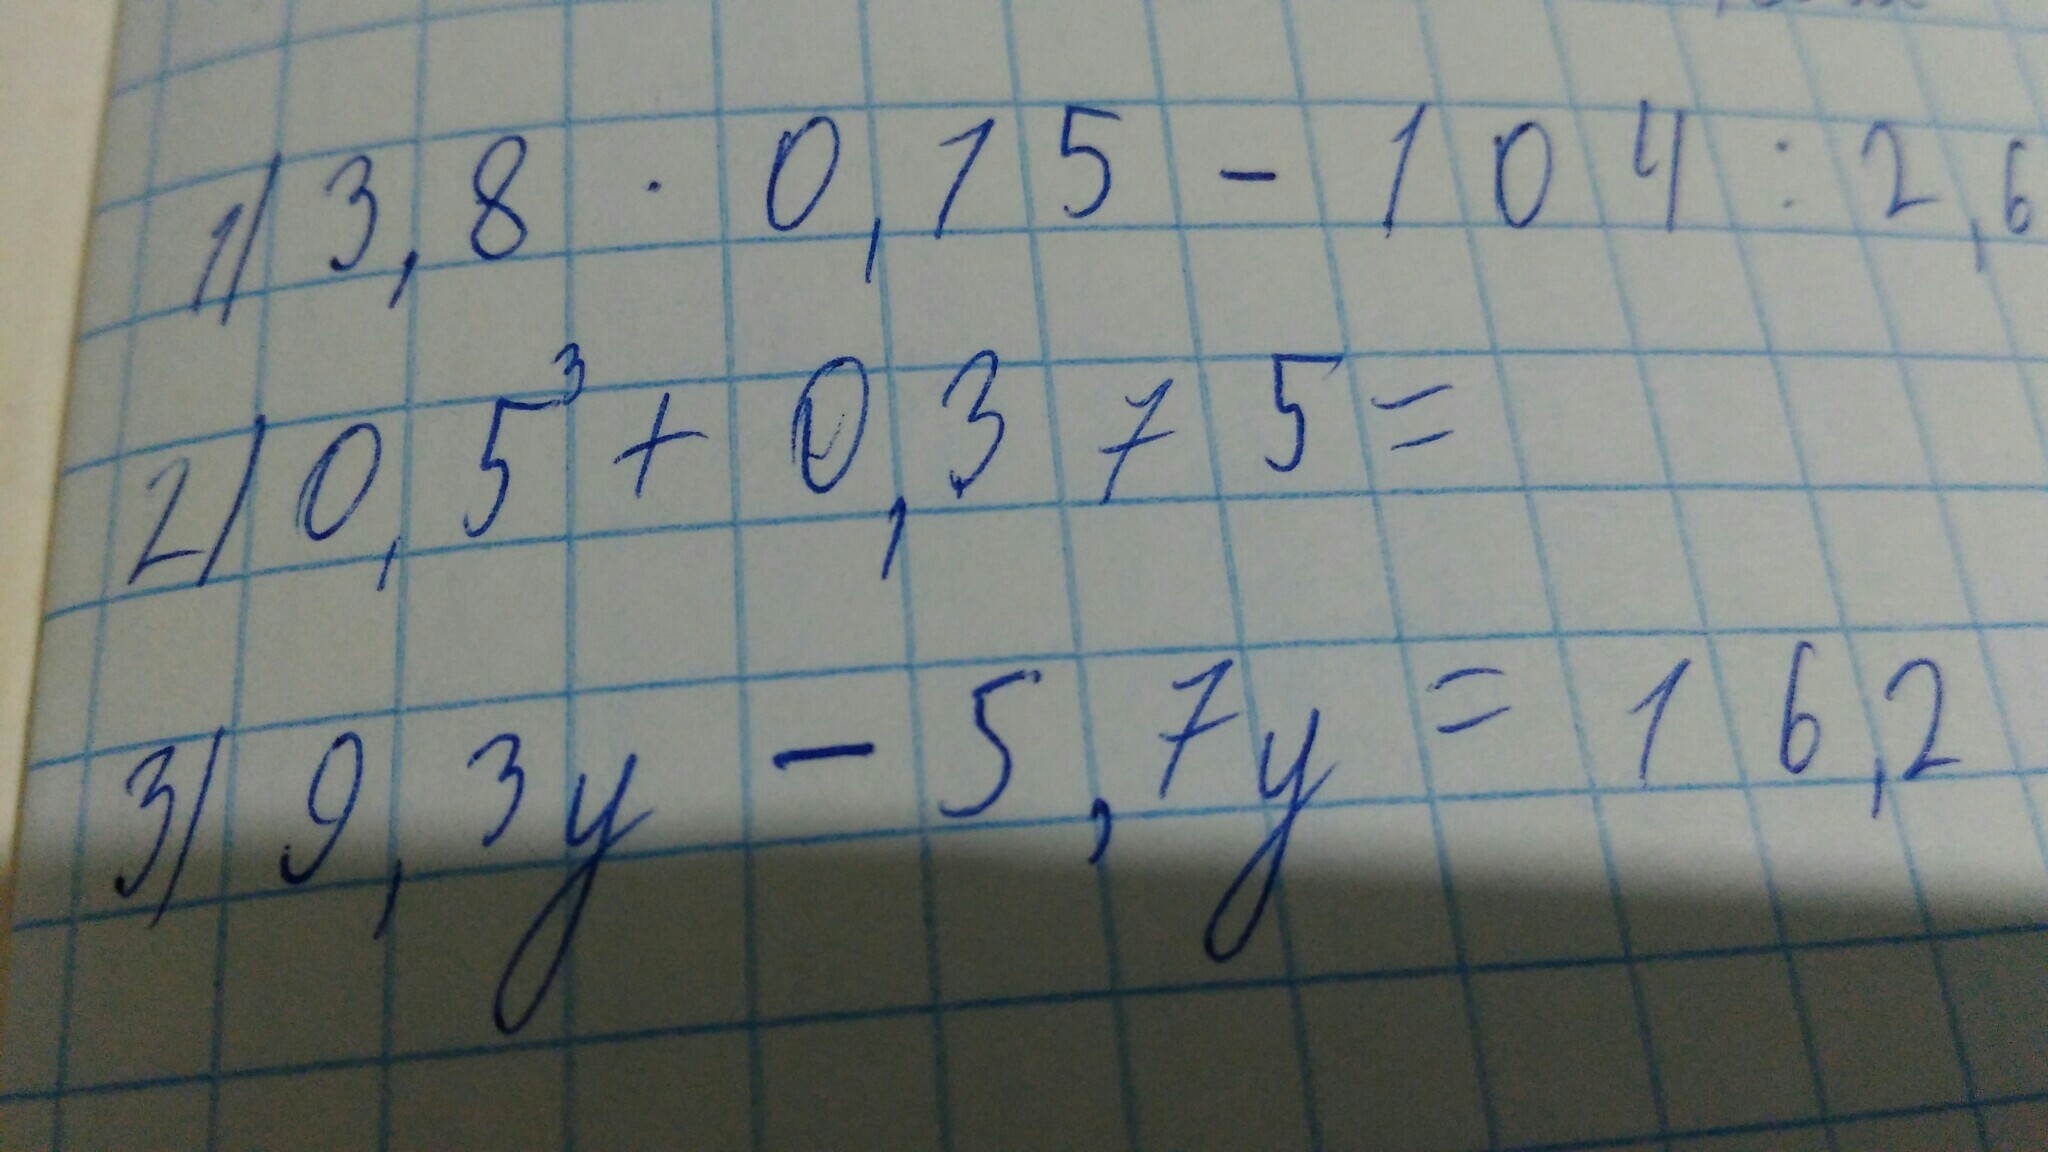 1) 3,8 · 0,15 - 104 : 2,6
2) 0,5³ + 0,375 =
3) 9,3y - 5,7y = 16,2